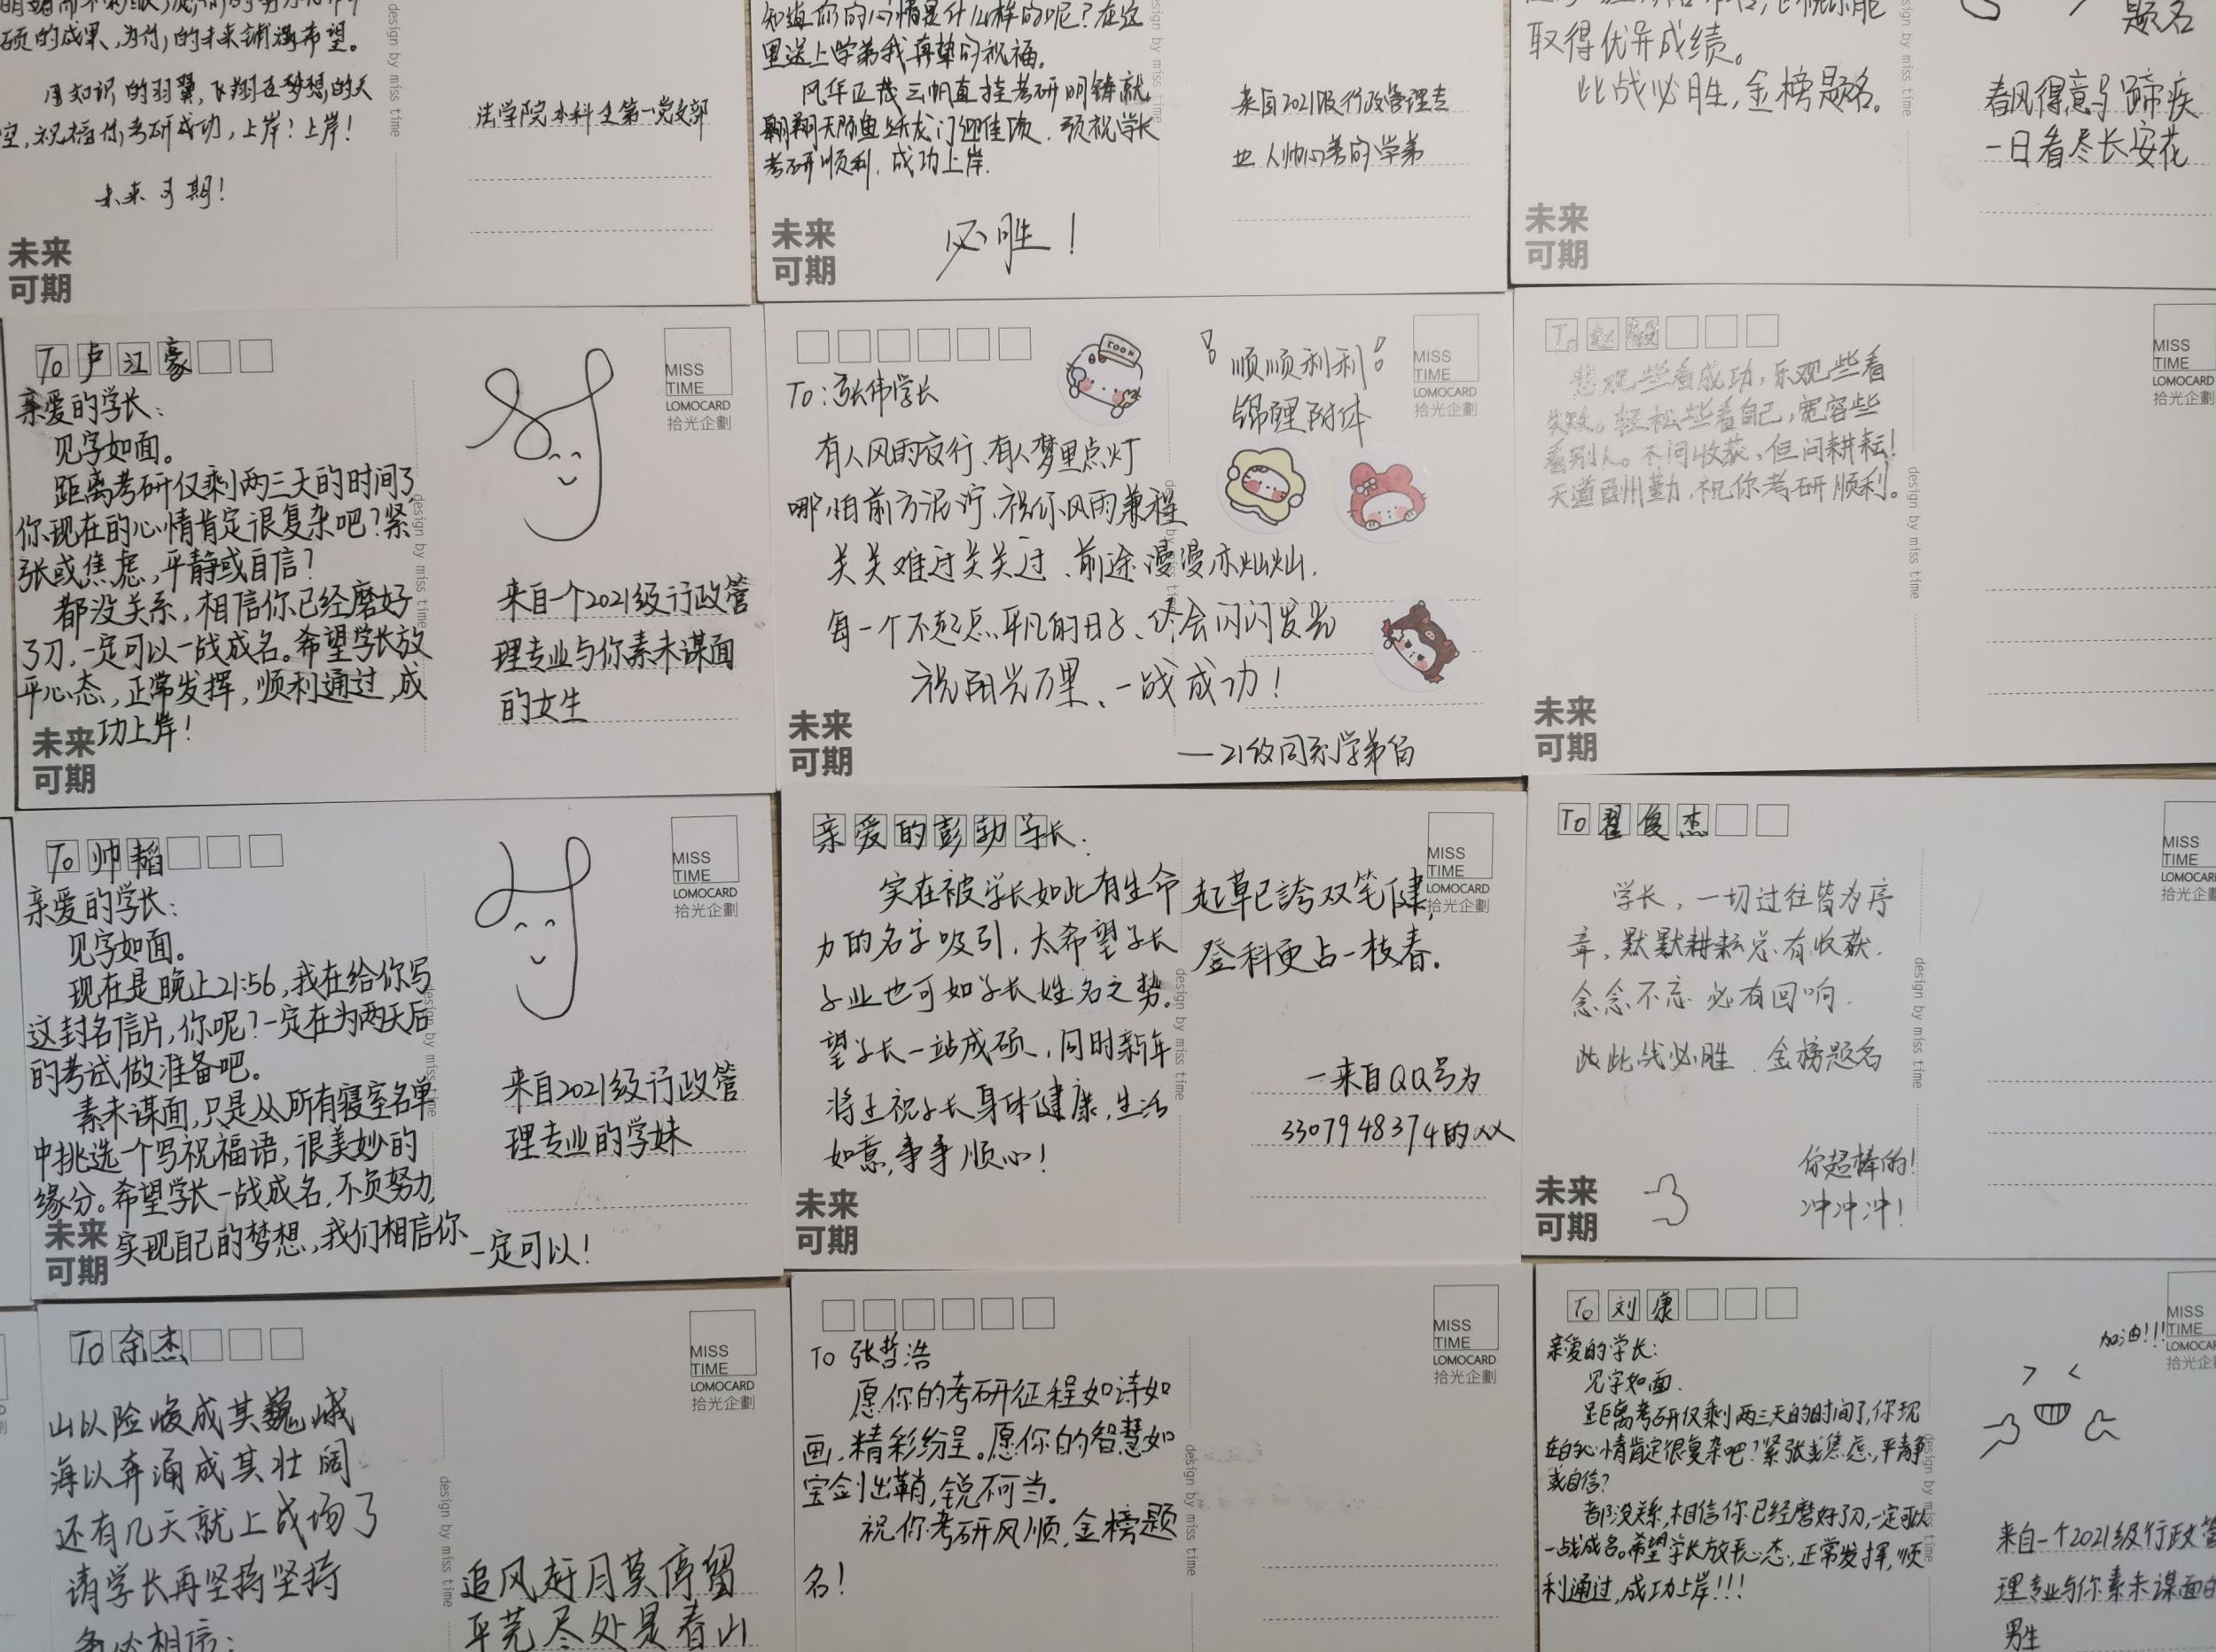 硕的成果,为你们的未来铺满希望。
用知识的羽翼,飞翔在梦想的天
空,祝福你考研成功,上岸!上岸!
未来可期!
未来
可期
design by miss time
法学院本科生第一党支部
知道你的心情是什么样的呢?在这
里送上学弟我真挚的祝福。
风华正茂云帆直挂考研明铸就
翱翔天际鱼跃龙门迎佳绩.预祝学长
考研顺利.成功上岸.
必胜!
未来
可期
design by miss time
来自2021级行政管理专
业人帅心善的学弟
取得优异成绩。
此战必胜,金榜题名。
未来
可期
design by miss time
题名
春风得意马蹄疾
一日看尽长安花
To 卢江豪
亲爱的学长:
见字如面。
距离考研仅剩两三天的时间了
你现在的心情肯定很复杂吧?紧
张或焦虑,平静或自信?
都没关系,相信你已经磨好
了刀,一定可以一战成名。希望学长放
平心态,正常发挥,顺利通过,成
功上岸!
未来
可期
design by miss time
MISS
TIME
LOMOCARD
拾光企劃
来自一个2021级行政管
理专业与你素未谋面
的女生
To:张伟学长
有人风雨夜行、有人梦里点灯
哪怕前方泥泞、祝你风雨兼程
关关难过关关过、前途漫漫亦灿灿.
每一个不起点平凡的日子、终会闪闪发光
祝阳光万里、一战成功!
—21级同系学弟白
COOK
顺顺利利!
锦鲤附体
MISS
TIME
LOMOCARD
拾光企劃
未来
可期
design by miss time
To 赵
悲观些看成功,乐观些看
失败。轻松些看自己,宽容些
看别人。不问收获,但问耕耘!
天道酉州勤,祝你考研顺利。
未来
可期
design by miss time
MISS
TIME
LOMOCARD
拾光企劃
To 帅韬
亲爱的学长:
见字如面。
现在是晚上21:56,我在给你写
这封名信片,你呢?一定在为两天后
的考试做准备吧。
素未谋面,只是从所有寝室名单
中挑选一个写祝福语,很美妙的
缘分。希望学长一战成名,不负努力,
实现自己的梦想,我们相信你一定可以!
未来
可期
design by miss time
MISS
TIME
LOMOCARD
拾光企劃
来自2021级行政管
理专业的学妹
亲爱的彭勃学长:
实在被学长如此有生命
力的名字吸引,太希望学长
学业也可如学长姓名之势。
望学长一站成硕,同时新年
将至祝学长身体健康,生活
如意,事事顺心!
起草已誇双笔健,
登科更占一枝春.
—来自QQ号为
3307948374的
未来
可期
design by miss time
MISS
TIME
LOMOCARD
拾光企劃
To 翟俊杰
学长,一切过往皆为序
章,默默耕耘总有收获.
念念不忘 必有回响.
此此战必胜.金榜题名
你超棒的!
冲冲冲!
未来
可期
design by miss time
MISS
TIME
LOMOCARD
拾光企劃
To 余杰
山以险峻成其巍峨
海以奔涌成其壮阔
还有几天就上战场了
请学长再坚持坚持
design by miss time
MISS
TIME
LOMOCARD
拾光企劃
追风赶月莫停留
平芜尽处是春山
To 张哲浩
愿你的考研征程如诗如
画,精彩纷呈。愿你的智慧如
宝剑出鞘,锐不可当。
祝你考研风顺,金榜题
名!
design by miss time
MISS
TIME
LOMOCARD
拾光企劃
To 刘康
亲爱的学长:
见字如面.
距离考研仅剩两三天的时间了,你现
在的心情肯定很复杂吧?紧张或焦虑,平静
或自信?
都没关系,相信你已经磨好了刀,一定可以
一战成名。希望学长放平心态,正常发挥,顺
利通过,成功上岸!!!
design by miss time
加油!!!
MISS
TIME
来自一个2021级行政管
理专业与你素未谋面的
男生